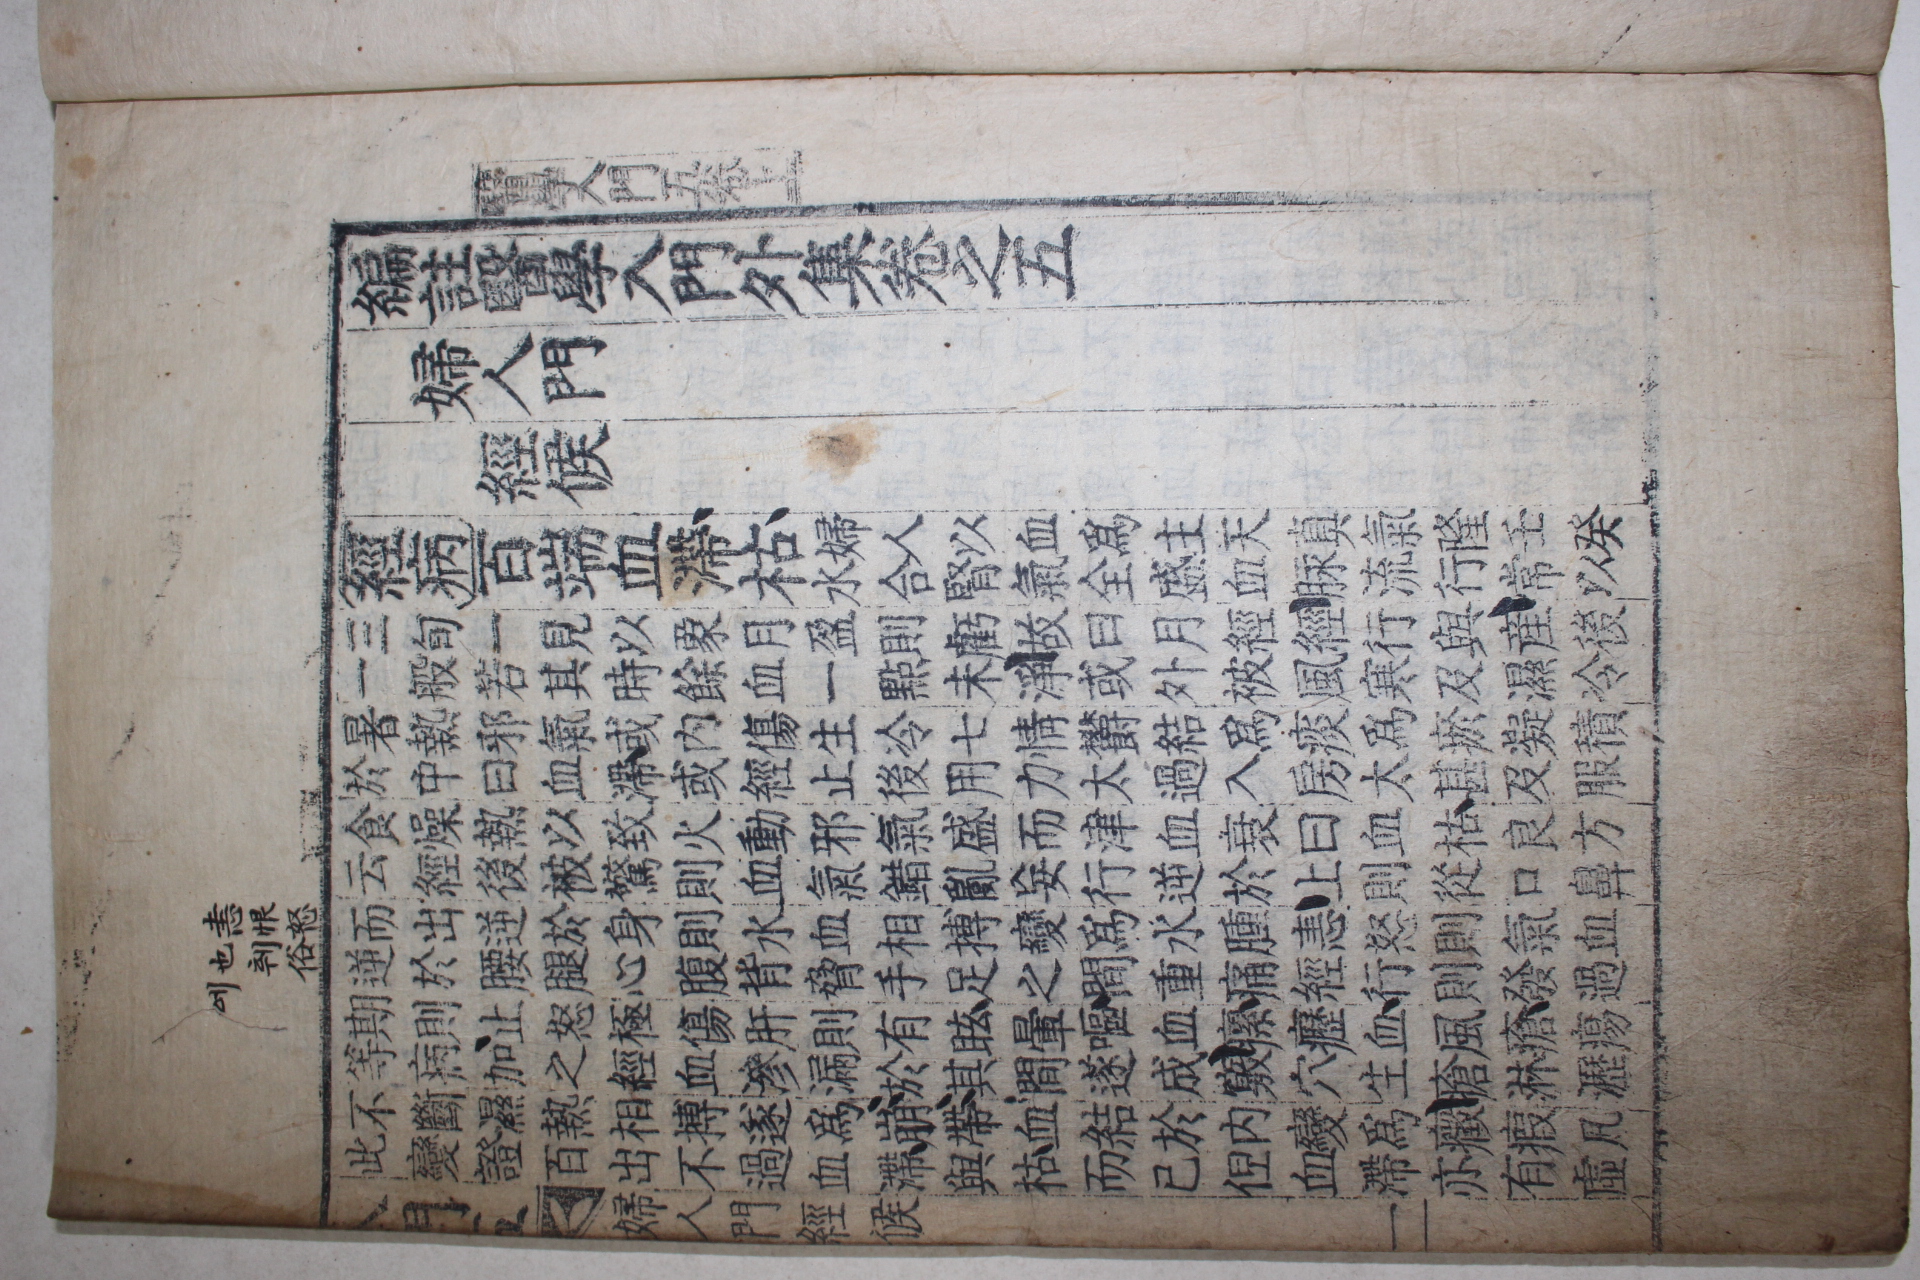 醫學入門五卷上
編註醫學入門外集卷之五
婦人門
經候
經病百端血滯枯
婦人以血爲主天眞氣隆壬癸
水合腎氣全盛血脉流行常以
三旬一見以象月盈則虧故曰月經經行與產後
一般若其時餘血一點未淨或外被風寒及濕冷
暑熱邪氣或內傷生冷七情鬱結爲痰爲瘀凝積
於中曰血滯或經止後用力太過入房太甚及服
食燥熱以致火動邪氣盛而津血衰曰血枯良方
云經後被驚則血氣錯亂妄行逆於上則從口鼻
而出逆於身則水血相搏變爲水腫恚怒則氣血
逆於腰腿心腹背脅手足之間重痛經行則發過
期則止怒極傷肝則有眩暈嘔血瘰癧血風瘡瘍
等病加之經血滲漏於其間遂成竅穴生瘡淋瀝
不斷濕熱相搏遂爲崩帶血結於內變爲癥瘕凡
此變證百出不過血滯與枯而已但血滯亦有虛
入門五 婦人門經候 一
恚恨怒
也 俗
예